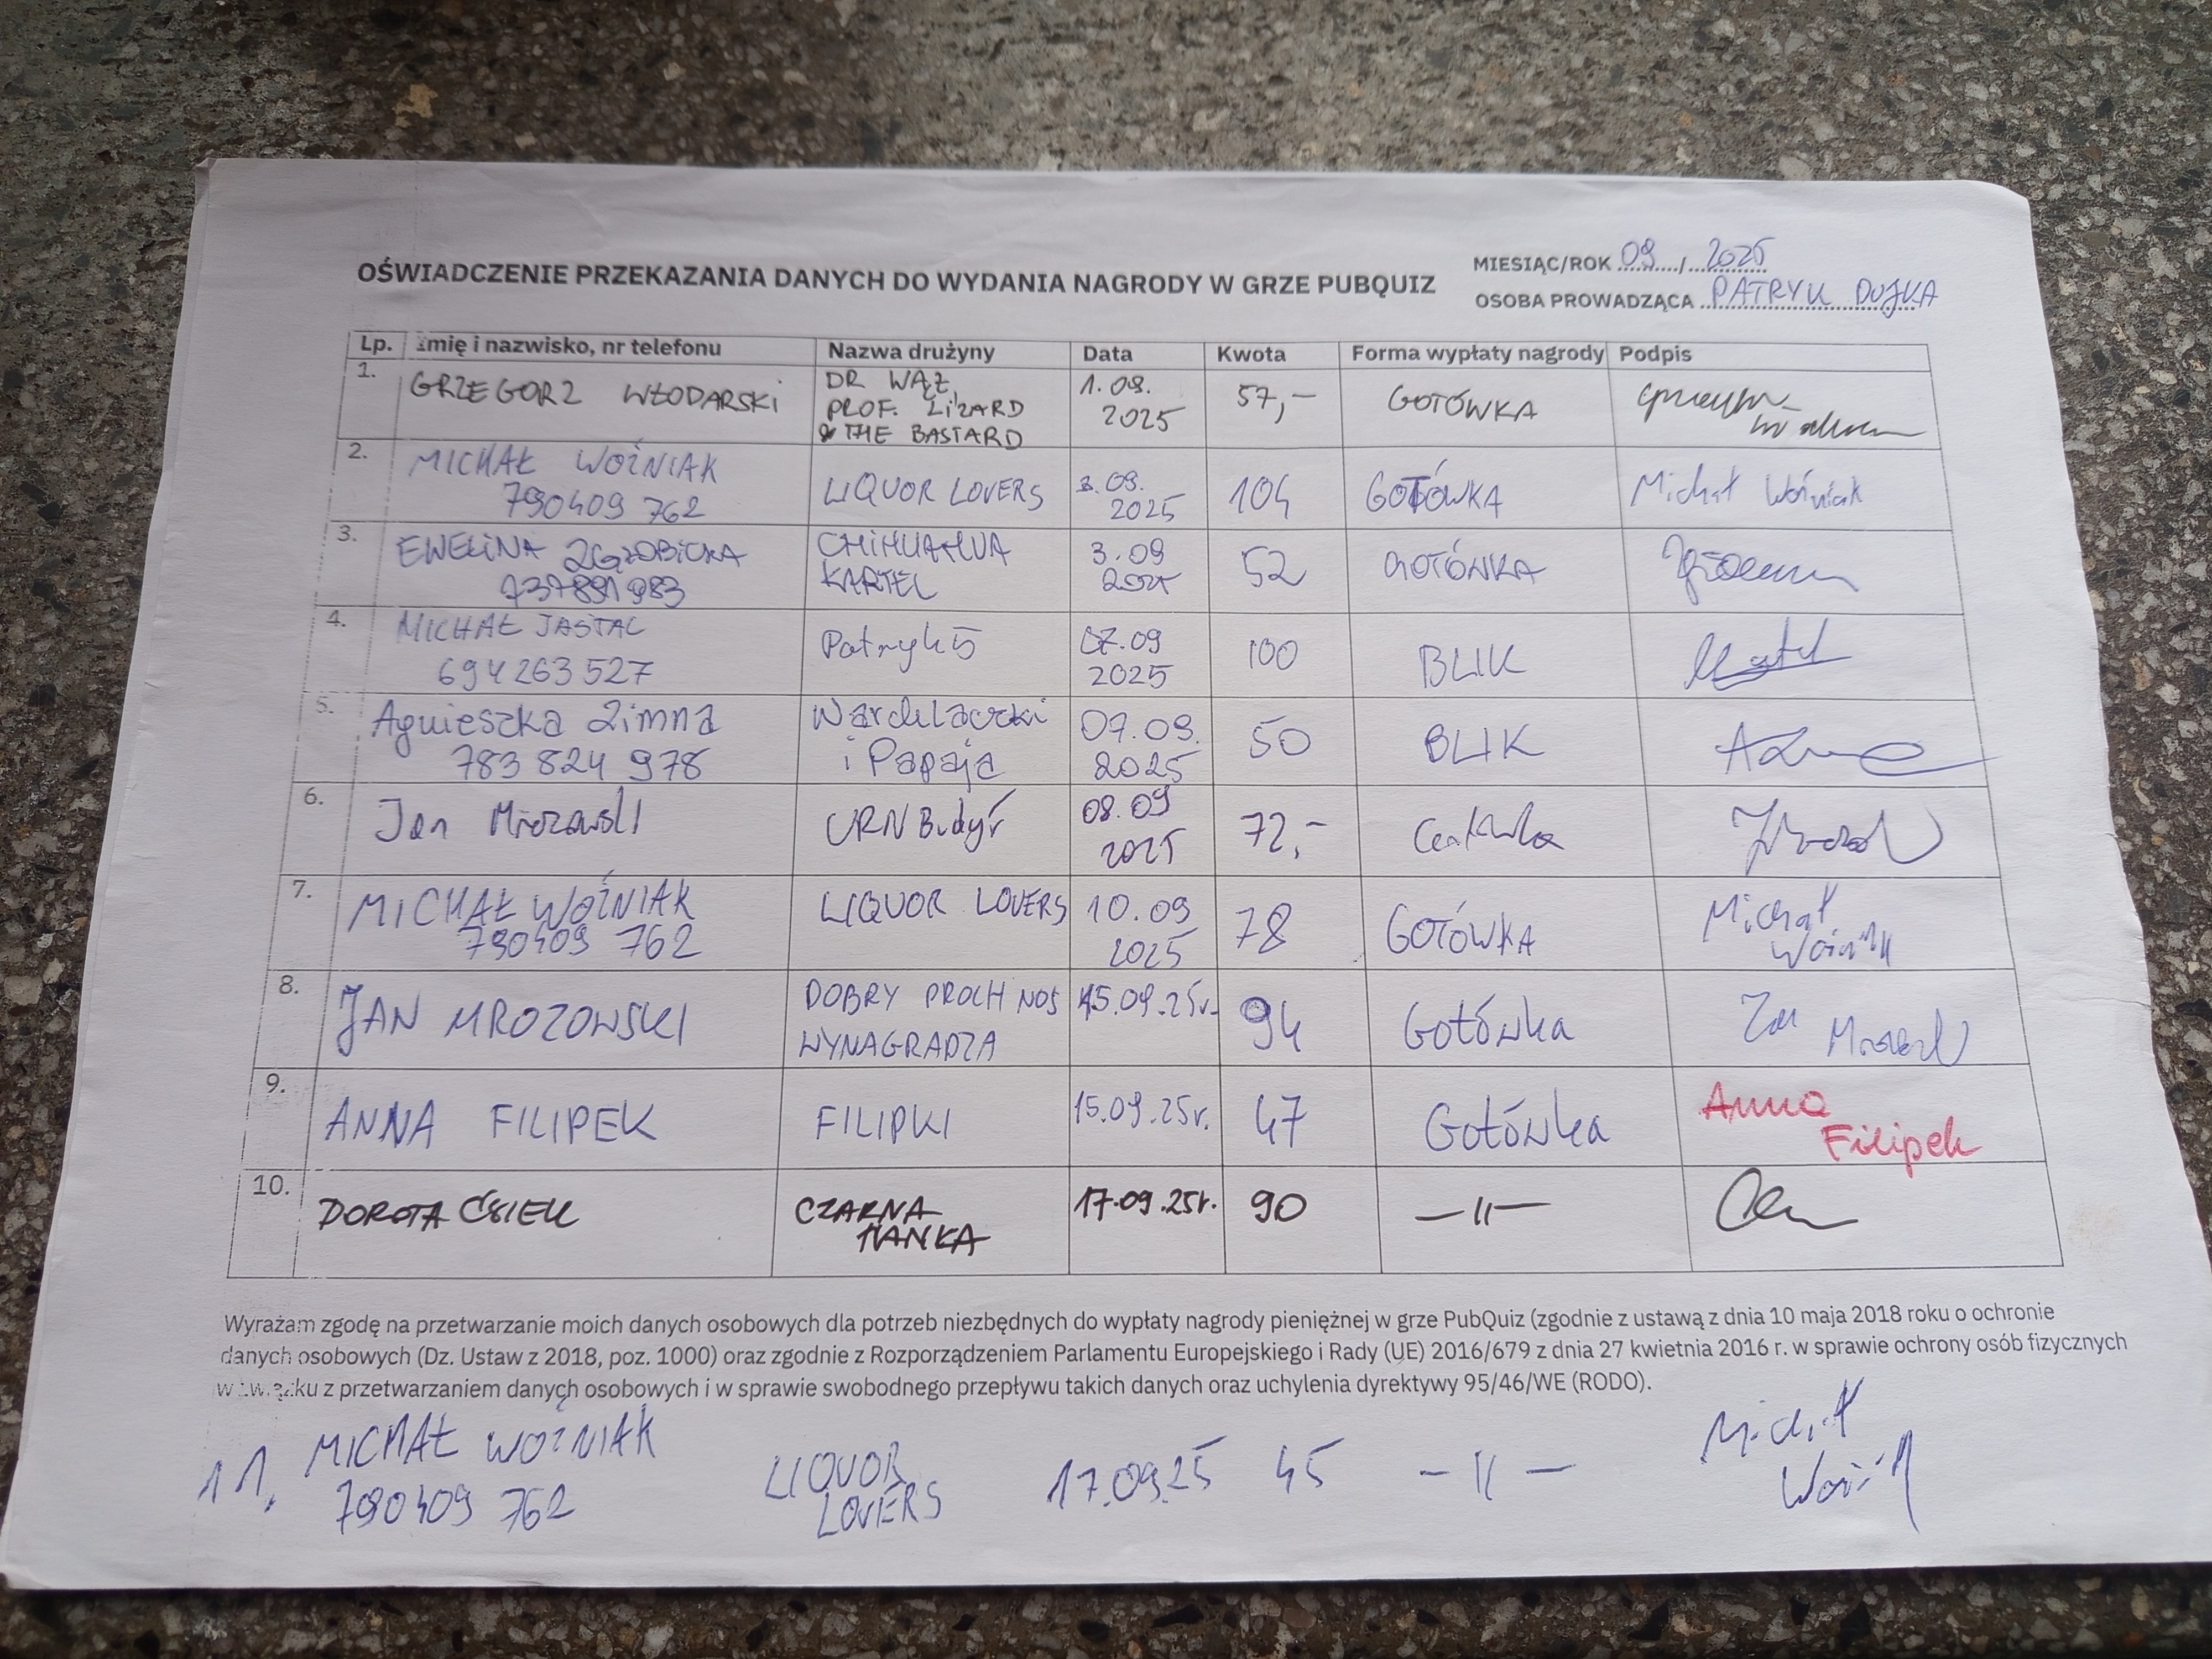 OŚWIADCZENIE PRZEKAZANIA DANYCH DO WYDANIA NAGRODY W GRZE PUBQUIZ
MIESIĄC/ROK 09 / 2025
OSOBA PROWADZĄCA PATRYK DUJKA
Lp. Imię i nazwisko, nr telefonu Nazwa drużyny Data Kwota Forma wypłaty nagrody Podpis
1. GRZEGORZ WŁODARSKI DR WĄŻ, 1.09. 57,- GOTÓWKA
PROF. LIZARD 2025
& THE BASTARD
2. MICHAŁ WOŹNIAK LIQUOR LOVERS 3.09. 104 GOTÓWKA Michał Woźniak
790409 762 2025
3. EWELINA CHIHUAHUA 3.09 52 GOTÓWKA
KARTEL 2025
4. MICHAŁ JASTAL Patryk5 07.09 100 BLIK
694263527 2025
5. Agnieszka Zimna 07.09. 50 BLIK
783 824 978 i Papaja 2025
6. Jan Mrozowski URN Budyń 08.09 72,-
2025
7. MICHAŁ WOŹNIAK LIQUOR LOVERS 10.09 78 GOTÓWKA Michał
790409 762 2025 Woźniak
8. JAN MROZOWSKI DOBRY PROCH NOS 15.09.25r. 94 Gotówka Jan
WYNAGRADZA
9. ANNA FILIPEK FILIPKI 15.09.25r. 47 Gotówka Anna
Filipek
10. DOROTA CZARNA 17.09.25r. 90 —||—
MAŃKA
Wyrażam zgodę na przetwarzanie moich danych osobowych dla potrzeb niezbędnych do wypłaty nagrody pieniężnej w grze PubQuiz (zgodnie z ustawą z dnia 10 maja 2018 roku o ochronie
danych osobowych (Dz. Ustaw z 2018, poz. 1000) oraz zgodnie z Rozporządzeniem Parlamentu Europejskiego i Rady (UE) 2016/679 z dnia 27 kwietnia 2016 r. w sprawie ochrony osób fizycznych
w związku z przetwarzaniem danych osobowych i w sprawie swobodnego przepływu takich danych oraz uchylenia dyrektywy 95/46/WE (RODO).
11. MICHAŁ WOŹNIAK LIQUOR 17.09.25 45 —||— Michał
790409 762 LOVERS